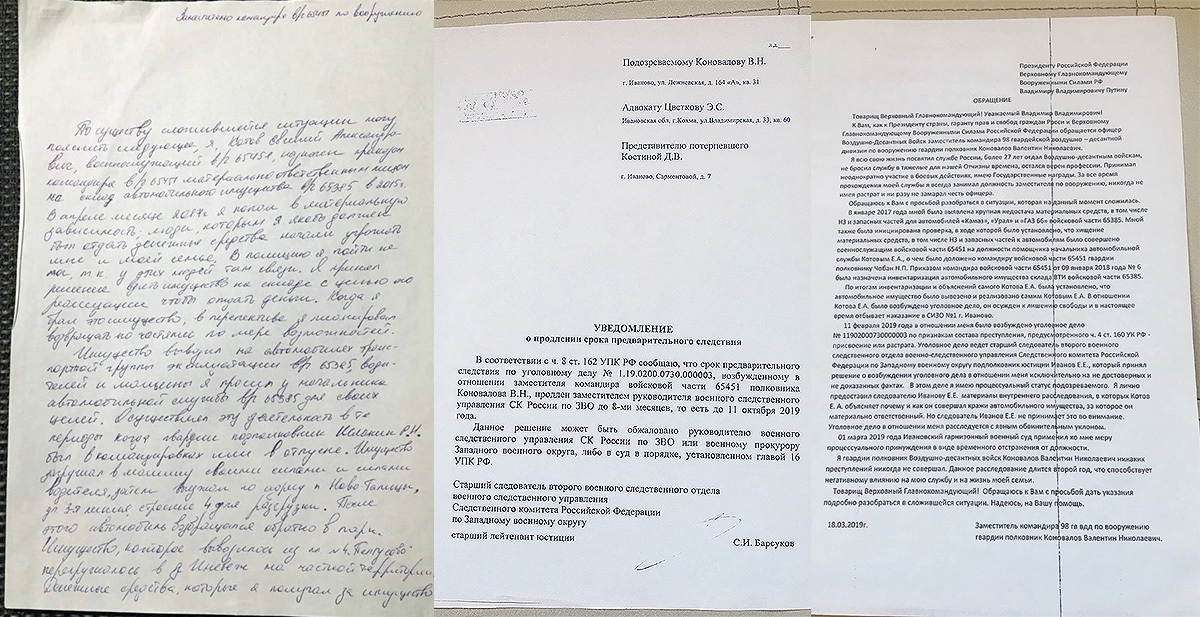 Заместителю командира в/ч 65451 по вооружению
По существу сложившейся ситуации могу
пояснить следующее, я, Котов Евгений Александро-
вич, военнослужащий в/ч 65451, назначен приказом
командира в/ч 65451 материально ответственным лицом
на склад автомобильного имущества в/ч 65385 в 2015г.
В апреле месяце 2017г я попал в материальную
зависимость, люди, которым я якобы должен
был отдать денежные средства начали угрожать
мне и моей семье. В полицию я пойти не
мог, т.к. у этих людей там связи. Я принял
решение брать имущество на складе с целью его
реализации чтобы отдать деньги. Когда я
брал это имущество, в перспективе я планировал
возвращать по частям по мере возможностей.
Имущество вывозил на автомобилях транс-
портной группы эксплуатации в/ч 65385 води-
телей и машины я просил у начальника
автомобильной службы в/ч 65385 для своих
целей. Осуществлял эту деятельность в те
периоды когда гвардии подполковник
был в командировках или в отпуске. Имущество
загружал в машину своими силами и силами
водителя, затем выезжал по адресу п. Ново-Талицы,
ул. 3-я линия строение 4 для разгрузки. После
этого автомобиль возвращался обратно в парк.
Имущество, которое вывозилось из
перегружалось в д. Иневеж на частной территории
Денежные средства, которые я получал за имущество
л.д.___
Подозреваемому Коновалову В.Н.
г. Иваново, ул. Лежневская, д. 164 «А», кв. 31
Адвокату Цветкову Э.С.
Ивановская обл, г.Кохма, ул.Владимирская, д. 33, кв. 60
Представителю потерпевшего
Костиной Д.В.
г. Иваново, Сарментовой, д. 7
УВЕДОМЛЕНИЕ
о продлении срока предварительного следствия
В соответствии с ч. 8 ст. 162 УПК РФ сообщаю, что срок предварительного
следствия по уголовному делу № 1.19.0200.0730.000003, возбужденному в
отношении заместителя командира войсковой части 65451 полковника
Коновалова В.Н., продлен заместителем руководителя военного следственного
управления СК России по ЗВО до 8-ми месяцев, то есть до 11 октября 2019
года.
Данное решение может быть обжаловано руководителю военного
следственного управления СК России по ЗВО или военному прокурору
Западного военного округа, либо в суд в порядке, установленном главой 16
УПК РФ.
Старший следователь второго военного следственного отдела
военного следственного управления
Следственного комитета Российской Федерации
по Западному военному округу
старший лейтенант юстиции
С.И. Барсуков
Президенту Российской Федерации
Верховному Главнокомандующему
Вооруженными Силами РФ
Владимиру Владимировичу Путину
ОБРАЩЕНИЕ
Товарищ Верховный Главнокомандующий! Уважаемый Владимир Владимирович!
К Вам, как к Президенту страны, гаранту прав и свобод граждан России и Верховному
Главнокомандующему Вооруженными Силами Российской Федерации обращается офицер
Воздушно-Десантных Войск заместитель командира 98 гвардейской воздушно – десантной
дивизии по вооружению гвардии полковник Коновалов Валентин Николаевич.
Я всю свою жизнь посвятил службе России, более 27 лет отдал Воздушно-десантным войскам,
не бросил службу в тяжелые для нашей Отчизны времена, остался верен профессии. Принимал
неоднократно участие в боевых действиях, имею Государственные награды. За все время
прохождения моей службы я всегда занимал должность заместителя по вооружению, никогда не
имел растрат и ни разу не замарал честь офицера.
Обращаюсь к Вам с просьбой разобраться в ситуации, которая на данный момент сложилась.
В январе 2017 года мной была выявлена крупная недостача материальных средств, в том числе
НЗ и запасных частей для автомобилей «Камаз», «Урал» и «ГАЗ 66» войсковой части 65385. Мной
также была инициирована проверка, в ходе которой было установлено, что хищение
материальных средств, в том числе НЗ и запасных частей к автомобилям было совершено
военнослужащим войсковой части 65451 на должности помощника начальника автомобильной
службы Котовым Е.А., о чем было доложено командиру войсковой части 65451 гвардии
полковнику Чобан Н.П. Приказом командира войсковой части 65451 от 09 января 2018 года № 6
была назначена инвентаризация автомобильного имущества склада ВТИ войсковой части 65385.
По итогам инвентаризации и объяснений самого Котова Е.А. было установлено, что
автомобильное имущество было вывезено и реализовано самим Котовым Е.А. В отношении
Котова Е.А. было возбуждено уголовное дело, он осужден к лишению свободы и в настоящее
время отбывает наказание в СИЗО №1 г. Иваново.
11 февраля 2019 года в отношении меня было возбуждено уголовное дело
№ 11902000730000003 по признакам состава преступления, предусмотренного ч. 4 ст. 160 УК РФ -
присвоение или растрата. Уголовное дело ведет старший следователь второго военного
следственного отдела военно-следственного управления Следственного комитета Российской
Федерации по Западному военному округу подполковник юстиции Иванов Е.Е., который принял
решение о возбуждении уголовного дела в отношении меня исключительно на не достоверных и
не доказанных фактах. В этом деле я имею процессуальный статус подозреваемого. Я лично
предоставил следователю Иванову Е.Е. материалы внутреннего расследования, в которых Котов
Е. А. объясняет почему и как он совершал кражи автомобильного имущества, за которое он
материально ответственный. Но следователь Иванов Е.Е. не принимает это во внимание.
Уголовное дело в отношении меня расследуется с явным обвинительным уклоном.
01 марта 2019 года Ивановский гарнизонный военный суд применил ко мне меру
процессуального принуждения в виде временного отстранения от должности.
Я гвардии полковник Воздушно-десантных войск Коновалов Валентин Николаевич никаких
преступлений никогда не совершал. Данное расследование длится второй год, что способствует
негативному влиянию на мою службу и на жизнь моей семьи.
Товарищ Верховный Главнокомандующий! Обращаюсь к Вам с просьбой дать указания
подробно разобраться в сложившейся ситуации. Надеюсь, на Вашу помощь.
18.03.2019г.
Заместитель командира 98 гв вдд по вооружению
гвардии полковник Коновалов Валентин Николаевич.